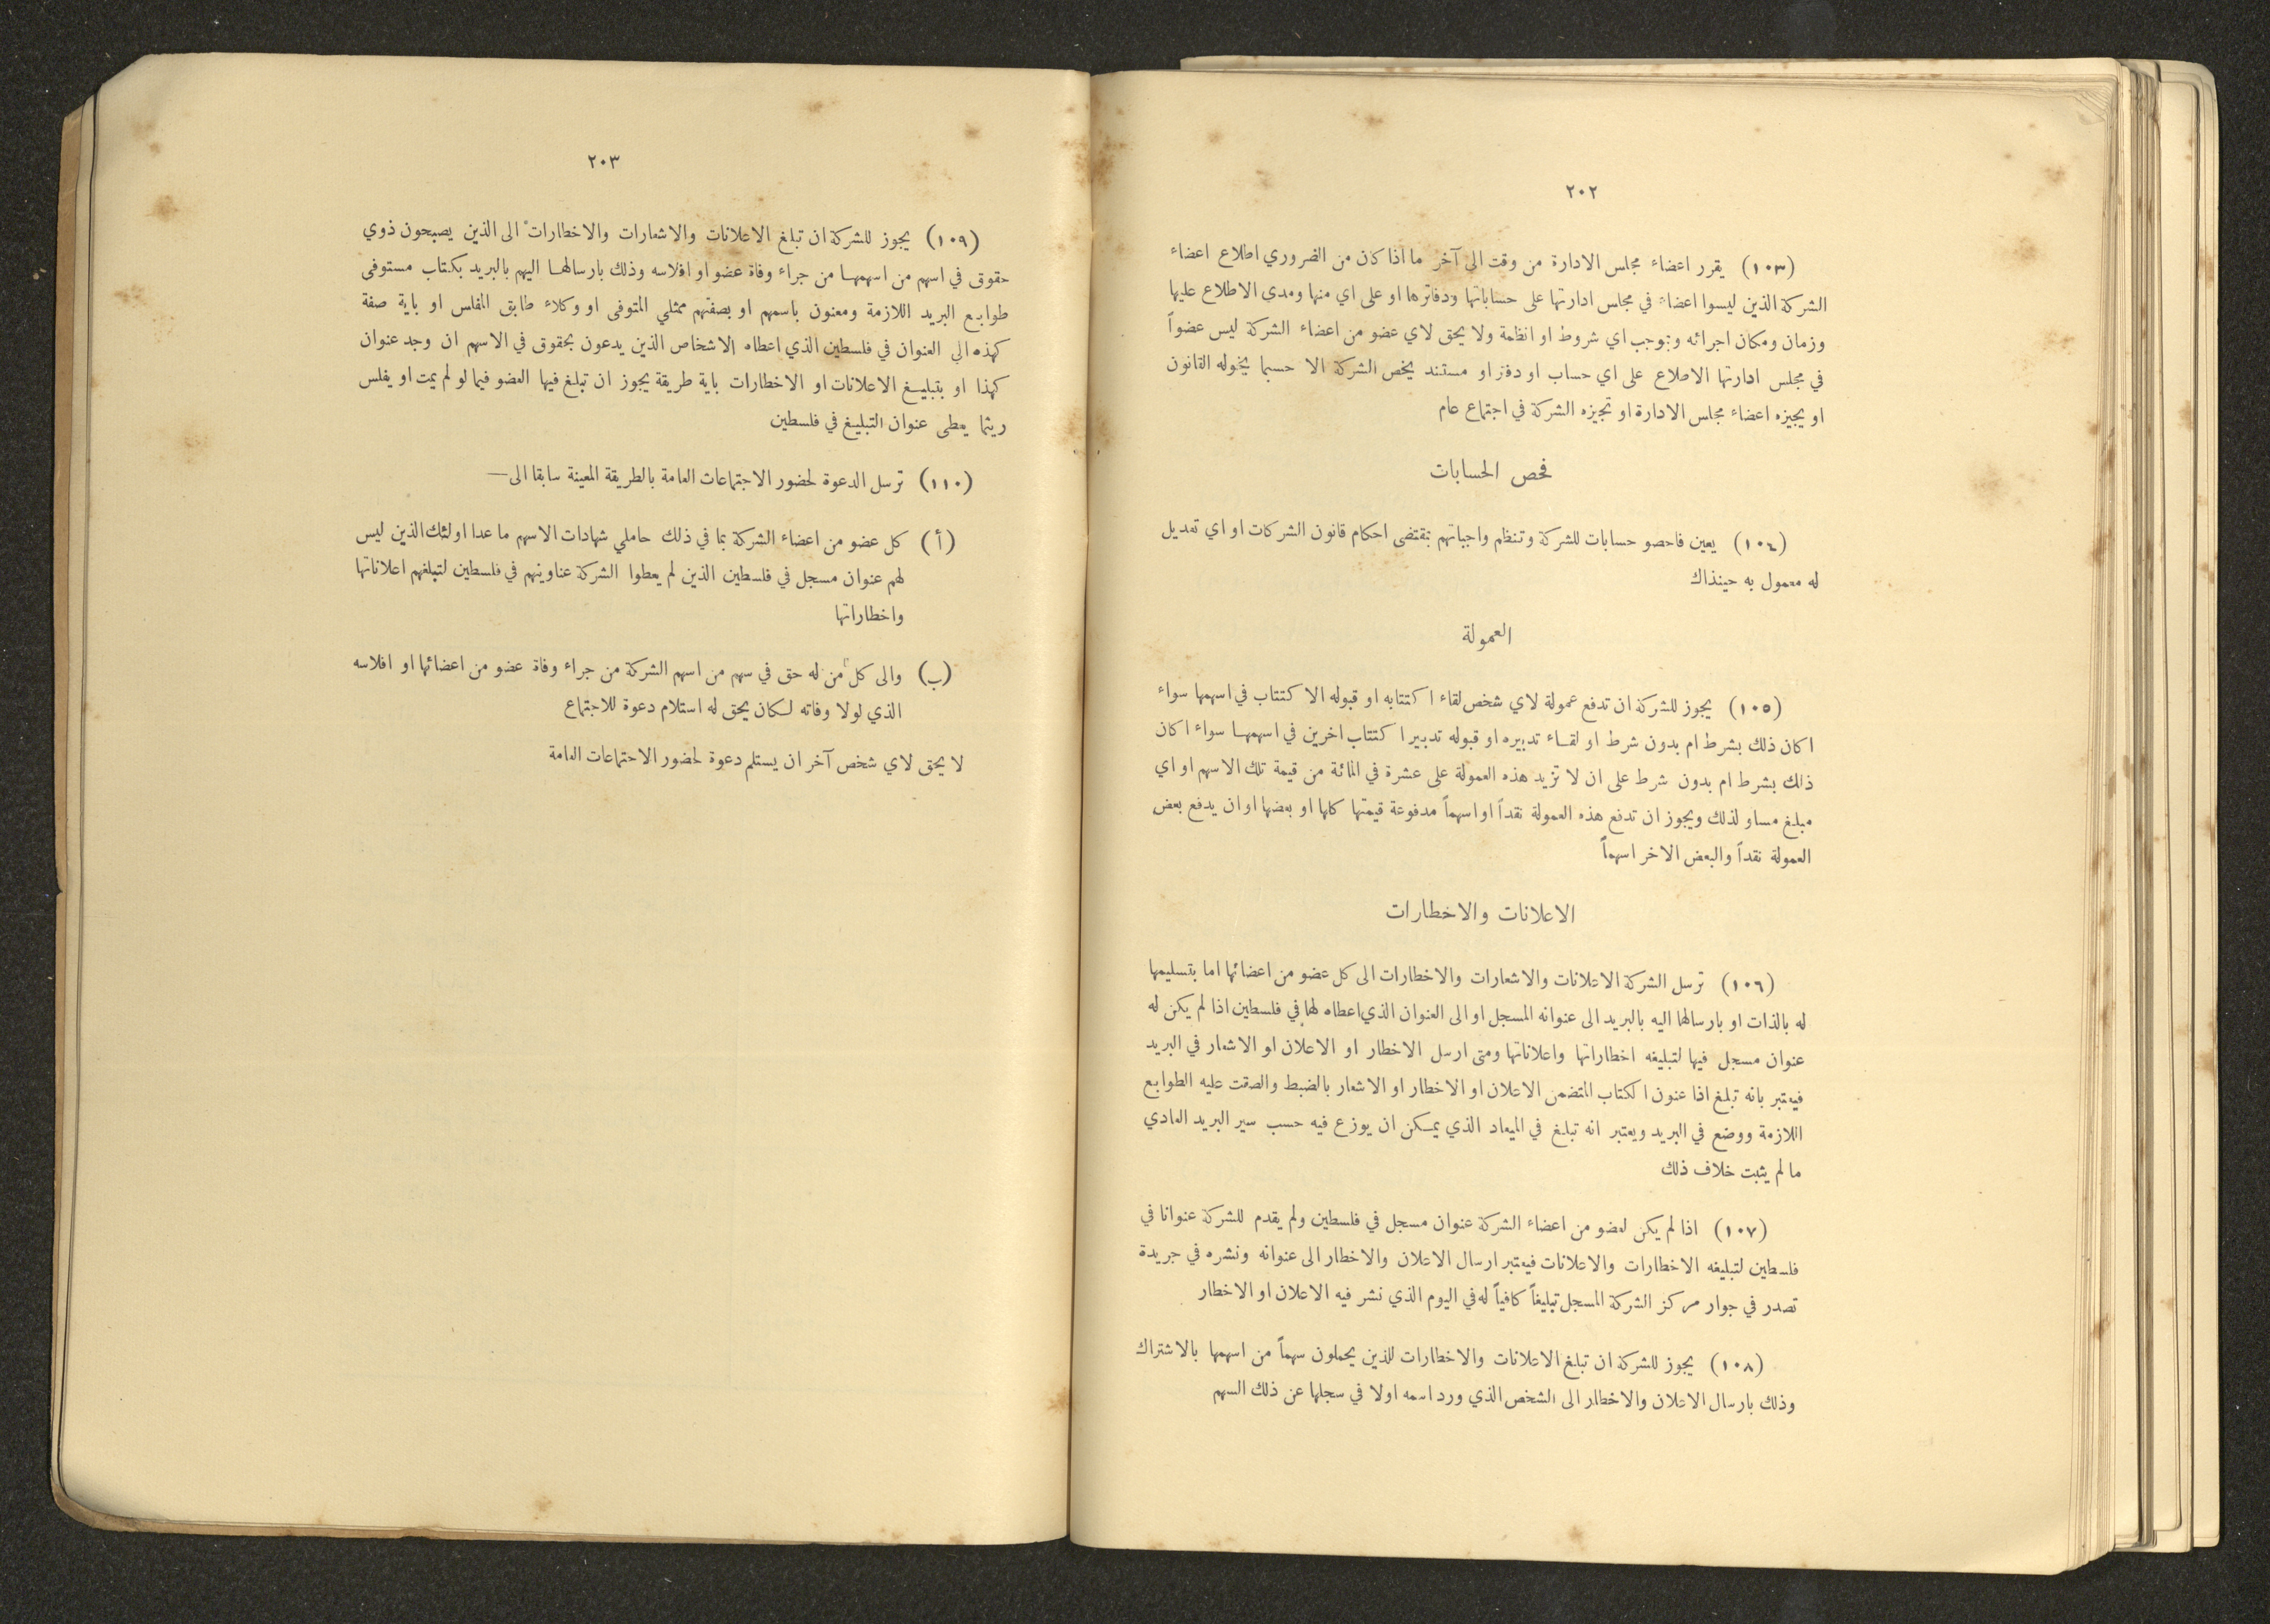 ٢٠٢
(١٠٣) يقرر اعضاء مجلس الادارة من وقت الى آخر ما اذا كان من الضروري اطلاع اعضاء
الشركة الذين ليسوا اعضاءً في مجلس ادارتها على حساباتها ودفاترها او على اي منها ومدى الاطلاع عليها
وزمان ومكان اجرائه وبموجب اي شروط او انظمة ولا يحق لاي عضو من اعضاء الشركة ليس عضواً
في مجلس ادارتها الاطلاع على اي حساب او دفتر او مستند يخص الشركة الا حسبما يخوله القانون
او يجيزه اعضاء مجلس الادارة او تجيزه الشركة في اجتماع عام
فحص الحسابات
(١٠٤) يعين فاحصو حسابات للشركة وتنظم واجباتهم بمقتضى احكام قانون الشركات او اي تعديل
له معمول به حينذاك
العمولة
(١٠٥) يجوز للشركة ان تدفع عمولة لاي شخص لقاء اكتتابه او قبوله الاكتتاب في اسهمها سواء
اكان ذلك بشرط ام بدون شرط او لقاء تدبيره او قبوله تدبير اكتتاب اخرين في اسهمها سواء اكان
ذلك بشرط ام بدون شرط على ان لا تزيد هذه العمولة على عشرة في المائة من قيمة تلك الاسهم او اي
مبلغ مساو لذلك ويجوز ان تدفع هذه العمولة نقداً او اسهماً مدفوعة قيمتها كلها او بعضها او ان يدفع بعض
العمولة نقداً والبعض الاخر اسهماً
الاعلانات والاخطارات
(١٠٦) ترسل الشركة الاعلانات والاشعارات والاخطارات الى كل عضو من اعضائها اما بتسليمها
له بالذات او بارسالها اليه بالبريد الى عنوانه المسجل او الى العنوان الذي اعطاه لها في فلسطين اذا لم يكن له
عنوان مسجل فيها لتبليغه اخطاراتها واعلاناتها ومتى ارسل الاخطار او الاعلان او الاشعار في البريد
فيعتبر بانه تبلغ اذا عنون الكتاب المتضمن الاعلان او الاخطار او الاشعار بالضبط والصقت عليه الطوابع
اللازمة ووضع في البريد ويعتبر انه تبلغ في الميعاد الذي يمكن ان يوزع فيه حسب سير البريد العادي
ما لم يثبت خلاف ذلك
(١٠٧) اذا لم يكن لعضو من اعضاء الشركة عنوان مسجل في فلسطين ولم يقدم للشركة عنوانا في
فلسطين لتبليغه الاخطارات والاعلانات فيعتبر ارسال الاعلان والاخطار الى عنوانه ونشره في جريدة
تصدر في جوار مركز الشركة المسجل تبليغاً كافياً له في اليوم الذي نشر فيه الاعلان او الاخطار
(١٠٨) يجوز للشركة ان تبلغ الاعلانات والاخطارات للذين يحملون سهماً من اسهمها بالاشتراك
وذلك بارسال الاعلان والاخطار الى الشخص الذي ورد اسمه اولا في سجلها عن ذلك السهم
٢٠٣
(١٠٩) يجوز للشركة ان تبلغ الاعلانات والاشعارات والاخطارات الى الذين يصبحون ذوي
حقوق في اسهم من اسهمها من جراء وفاة عضو او افلاسه وذلك بارسالها اليهم بالبريد بكتاب مستوفى
طوابع البريد اللازمة ومعنون باسمهم او بصفتهم ممثلي المتوفى او وكلاء طابق المفلس او باية صفة
كهذه الى العنوان في فلسطين الذي اعطاه الاشخاص الذين يدعون بحقوق في الاسهم ان وجد عنوان
كهذا او بتبليغ الاعلانات او الاخطارات باية طريقة يجوز ان تبلغ فيها العضو فيما لو لم يمت او يفلس
ريثما يعطى عنوان التبليغ في فلسطين
(١١٠) ترسل الدعوة لحضور الاجتماعات العامة بالطريقة المعينة سابقا الى—
(أ) كل عضو من اعضاء الشركة بما في ذلك حاملي شهادات الاسهم ما عدا اولئك الذين ليس
لهم عنوان مسجل في فلسطين الذين لم يعطوا الشركة عناوينهم في فلسطين لتبلغهم اعلاناتها
واخطاراتها
(ب) والى كل من له حق في سهم من اسهم الشركة من جراء وفاة عضو من اعضائها او افلاسه
الذي لولا وفاته لكان يحق له استلام دعوة للاجتماع
لا يحق لاي شخص آخر ان يستلم دعوة لحضور الاجتماعات العامة